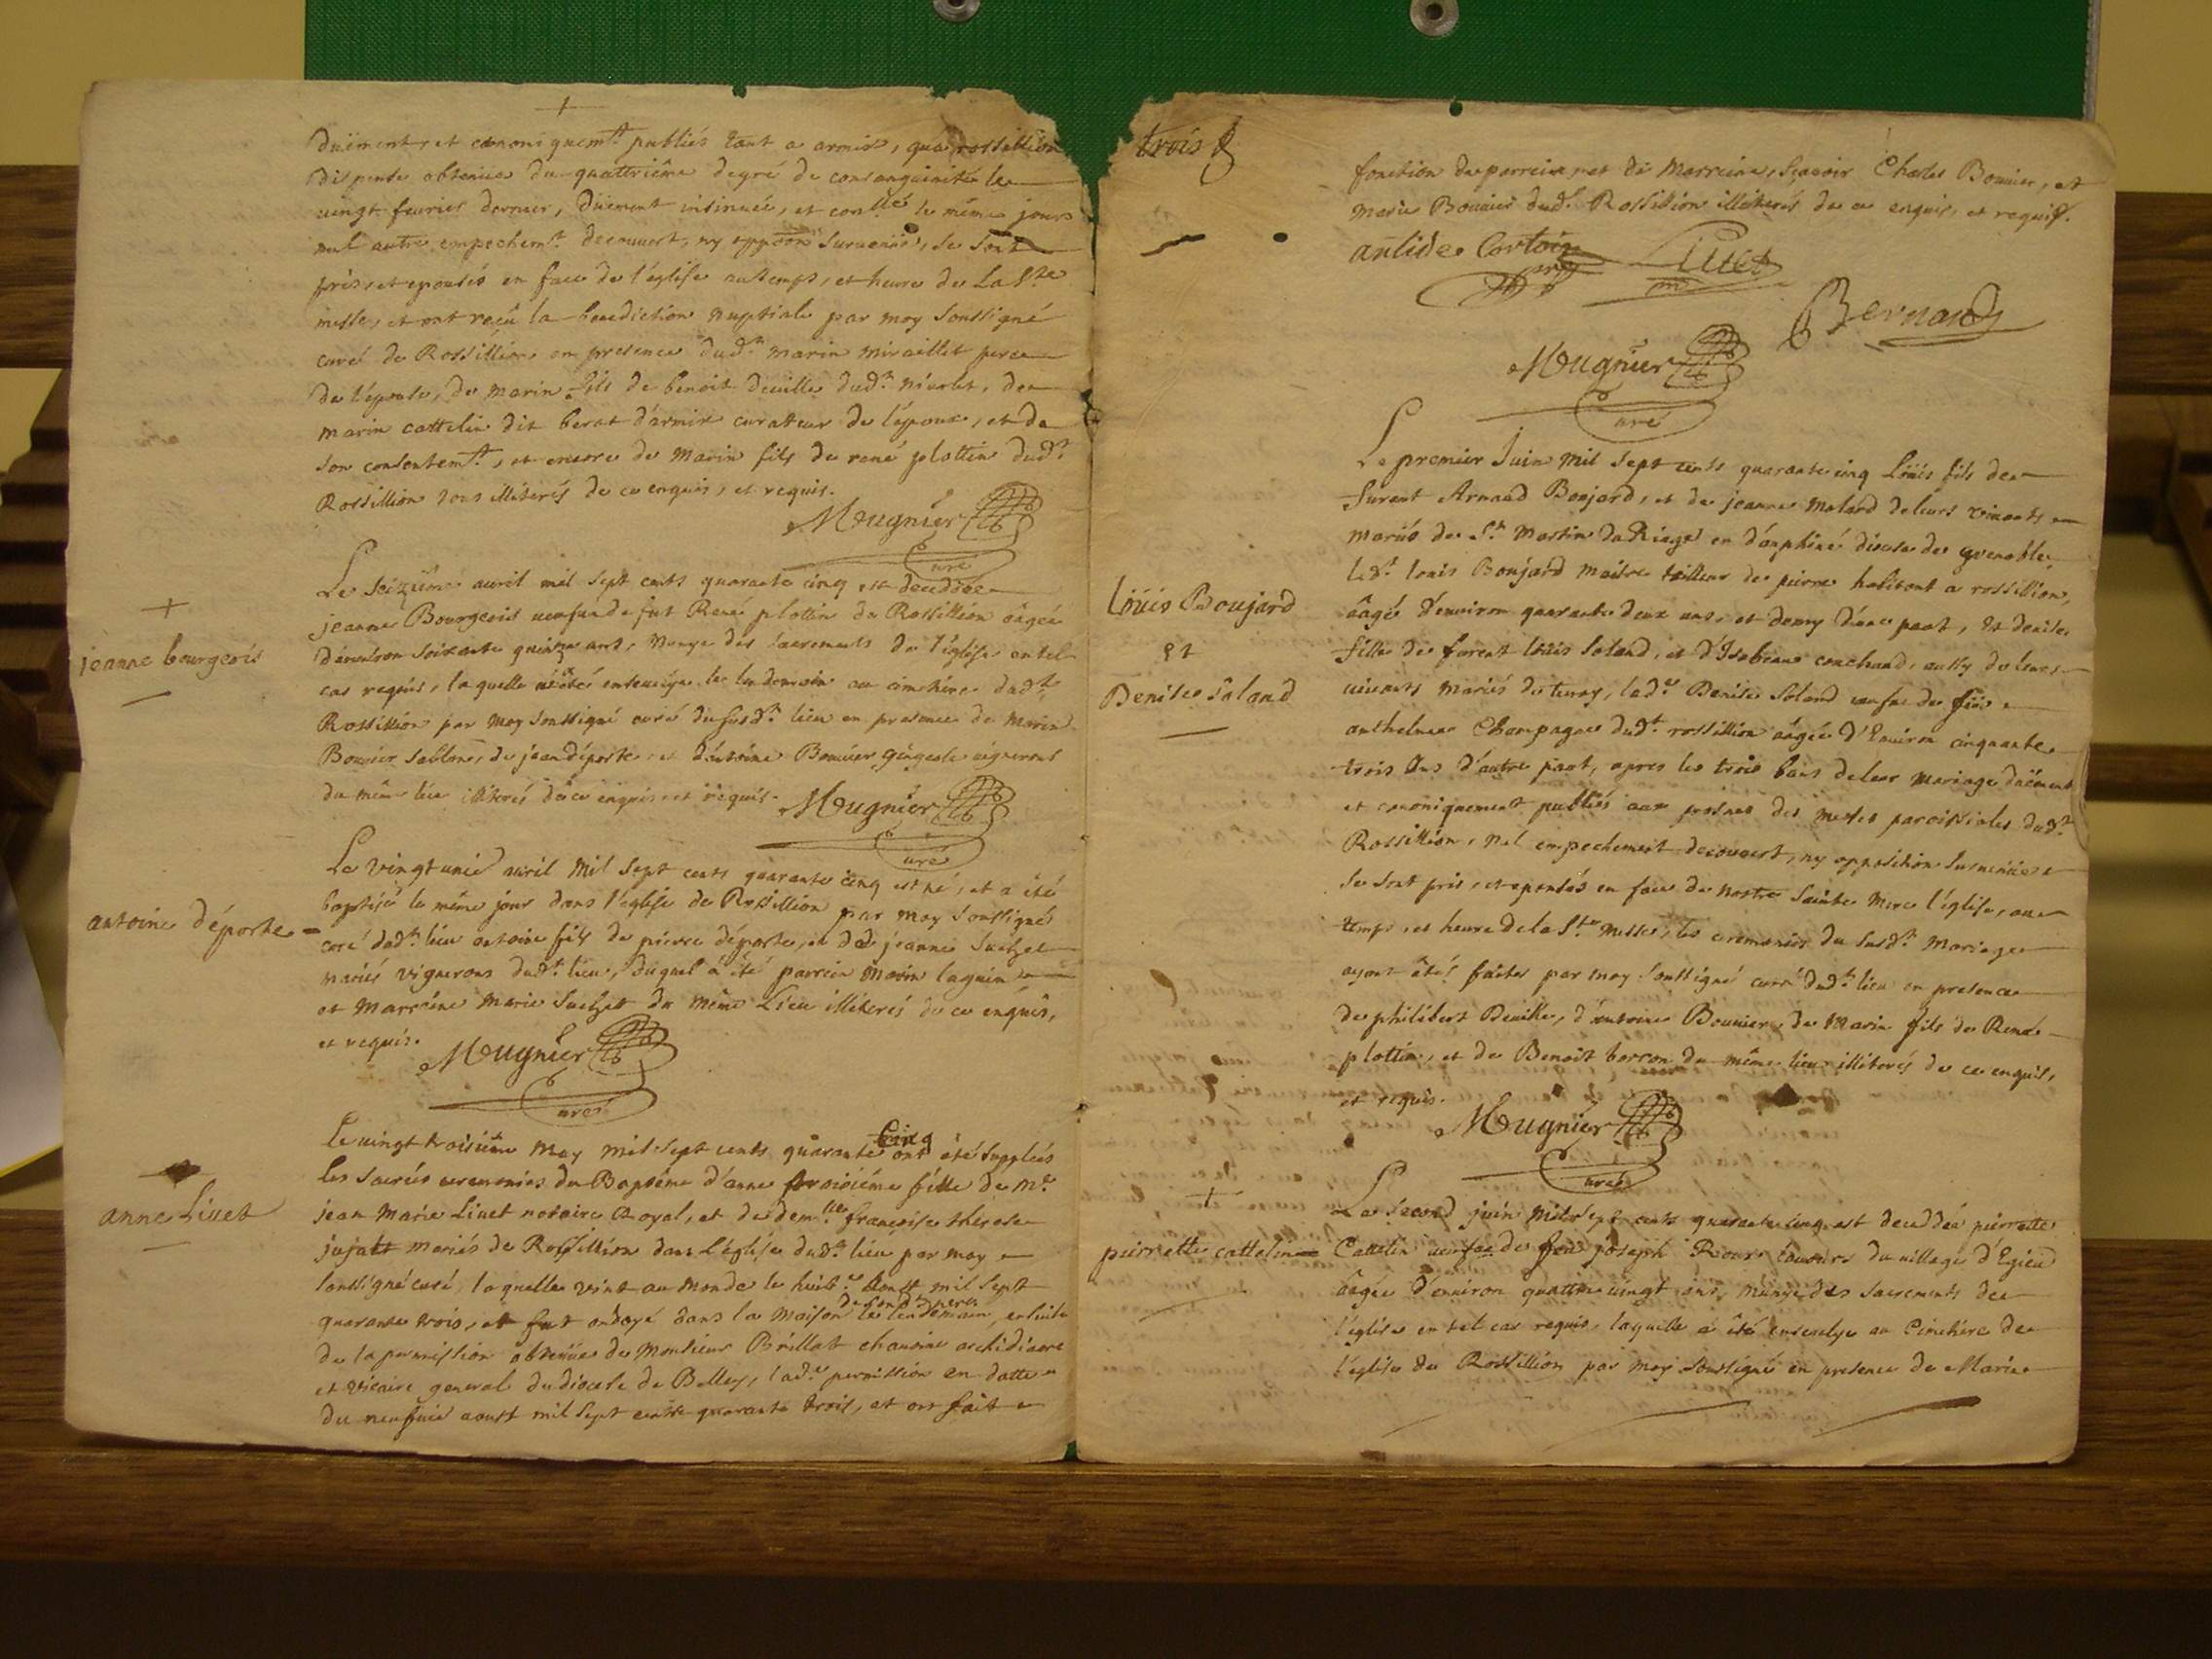 duëment, et canoniquemt. publiés tant a armix, qu'a rossillion
dispense obtenüe du quattriême degré de consanguinité le
vingt feurier dernier, düement insinuée, et conllée le même jour
nul autre empechemt. decouuert, ny oppoon suruenüe, se sont
pris, et epousés en face de l'église au temps, et heure de La Ste
messe, et ont reçu la benediction nuptiale par moy soussigné
curé de Rossillion en presence dudt. marin miraillet pere
de l'épouse, de marin fils de benoit deuille dudt. , de
marin cattelin dit berat d'armix curatteur de l'epoux, et de
son consentemt., et encore de Marin fils de rené plottin dudt.
Rossillion tous illiterés de ce enquis, et requis.
Mougnier
curé
+
jeanne bourgeois
Le seizième auril mil sept cents quarante cinq est deceddée
jeanne Bourgeois ueufue de fut René plottin de Rossillion âagée
d'enuiron soixante quinze ans, munye des sacrements de l'église en tel
cas requis, laquelle a été enseuelye le lendemain au cimetiere dudt.
Rossillion par moy soussigné curé du susdt. lieu en presence de marin
Bouuier sablon, de jean déporte, et d'antoine Bouuier uignerons
du même lieu illiterés de ce enquis et requis. Mougnier
curé
antoine déporte
Le vingt unie auril mil sept cents quarante cinq est né, et a été
baptisé le même jour dans l'église de Rossillion par moy soussigné
curé dudt. lieu antoine fils de pierre déporte, et de jeanne Suchet
mariés vignerons dudt. lieu, duquel a été parrein Marin laguin
et Marreine Marie Suchet du même Lieu illiterés de ce enquis,
et requis. Mougnier
curé
anne Liuet
Le uingt troisième may mil sept cents quarante cinq ont été supplées
les sacrées ceremonies du Baptême d'anne françoise fille de Me.
jean Marie Liuet notaire Royal, et de demlle. françoise therese
jujatt mariés de Rossillion dans l'église dudt. lieu par moy
soussigné curé, laquelle vint au monde le huite. Aoust mil sept
quarante trois, et fut ondoyé dans la maison de sondt. pere le lendemain, ensuite
de la permission obtenüe de Monsieur Brillat chanoine archidiacre
et vicaire general du diocese de Belley, lade. permission en datte
du neufuie aoust mil sept cents quarante trois, et ont fait
trois
fonction de parrein, et de Marreine, Sçauoir Charles Bouuier, et
Marie Bouuier dudt. Rossillion illiterés de ce enquis, et requis.
antide Cortois Liuet
Bernard
Mougnier
curé
Loüis Boujard
et
Denise Soland
Le premier Juin mil sept cents quarante cinq Loüis fils de
furent Arnaud Boujard, et de jeanne Molard de leurs viuants
mariés de St. Martin en dauphiné diocese de grenoble,
ledt. louis Boujard maitre tailleur de pierre habitant a rossillion,
âagé d'enuiron quarante deux ans, et demy d'une part, et denise
fille de furent loüis Soland, et d'Isabeau couchaud, aussy de leurs
uiuants mariés de tenay, lade. Denise Soland ueufue de feu
anthelme Champagne dudt. rossillion âagée d'Enuiron cinquante
trois Ans d'autre part, apres les trois bans de leur mariage düement
et canoniquement publiés aux prosnes des messes paroissiales dudt.
Rossillion, nul empechement decouuert, ny opposition suruenüe
se sont pris, et epousés en face de nostre Sainte Mere l'église, au
temps, et heure de la Ste. Messe, les ceremonies du susdt. mariage
ayant étés faites par moy soussigné curé dudt. lieu en presence
de philibert Deuille, d'antoine Bouuier, de Marin fils de René
plottin, et de Benoit borron du même lieu illiterés de ce enquis,
et requis. Mougnier
curé
+
pierrette cattelin
Le second juin mil sept cents quarante cinq est deceddée pierrette
Cattelin ueufue de feu joseph Roux du uillage d'Egieu
âagée d'enuiron quattre uingt ans, munye des sacrements de
l'église en tel cas requis, laquelle a été enseuelye au Cimetiere de
l'église de Rossillion par moy soussigné en presence de Marin